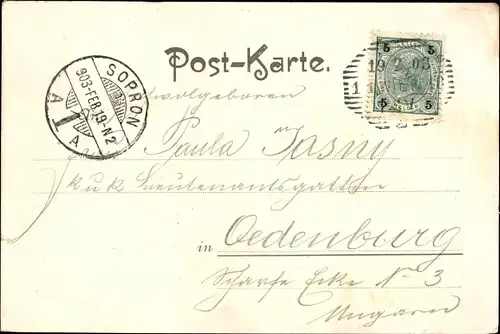 Post-Karte.
SOPRON
903-FEB19-N2
A A
5 5
19 2 03
5 5
Hochwolgeboren
Paula Jasny
k u k Lieutenantsgattin
in Oedenburg
Scharfe Ecke № 3
Ungarn